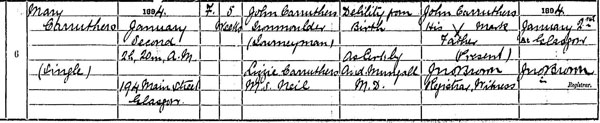 Mary
Carruthers
(Single)
1894.
January
Second
2h. 20m. A.M.
194 Main Street
Glasgow.
F.
5
Weeks
John Carruthers
Ironmoulder
(Journeyman)
Lizzie Carruthers
M.S. Neil
Debility from
Birth
As Cert. by
And. Mungall
M.D.
John Carruthers
His X Mark
Father
(Present)
Jno Brown
Registrar, Witness
1894.
January 2nd
At Glasgow
Jno Brown
Registrar.
6